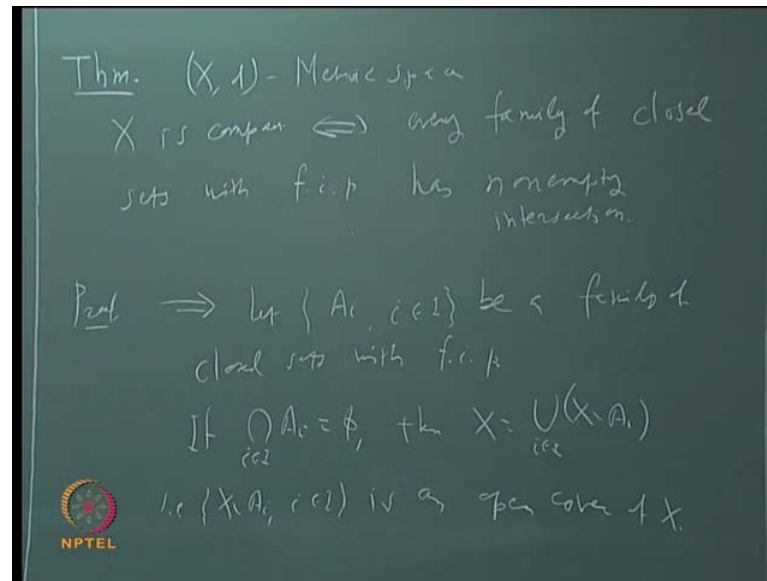 Thm. (X, d) - Metric space
X is compact ⟺ every family of closed
sets with f.i.p has nonempty
intersection.
Proof ⟹ Let { Ai, i∈I } be a family of
closed sets with f.i.p.
If ⋂ i∈I Ai = ϕ, then X = ⋃ i∈I (X \ Ai)
i.e {X \ Ai, i∈I} is an open cover of X.
NPTEL